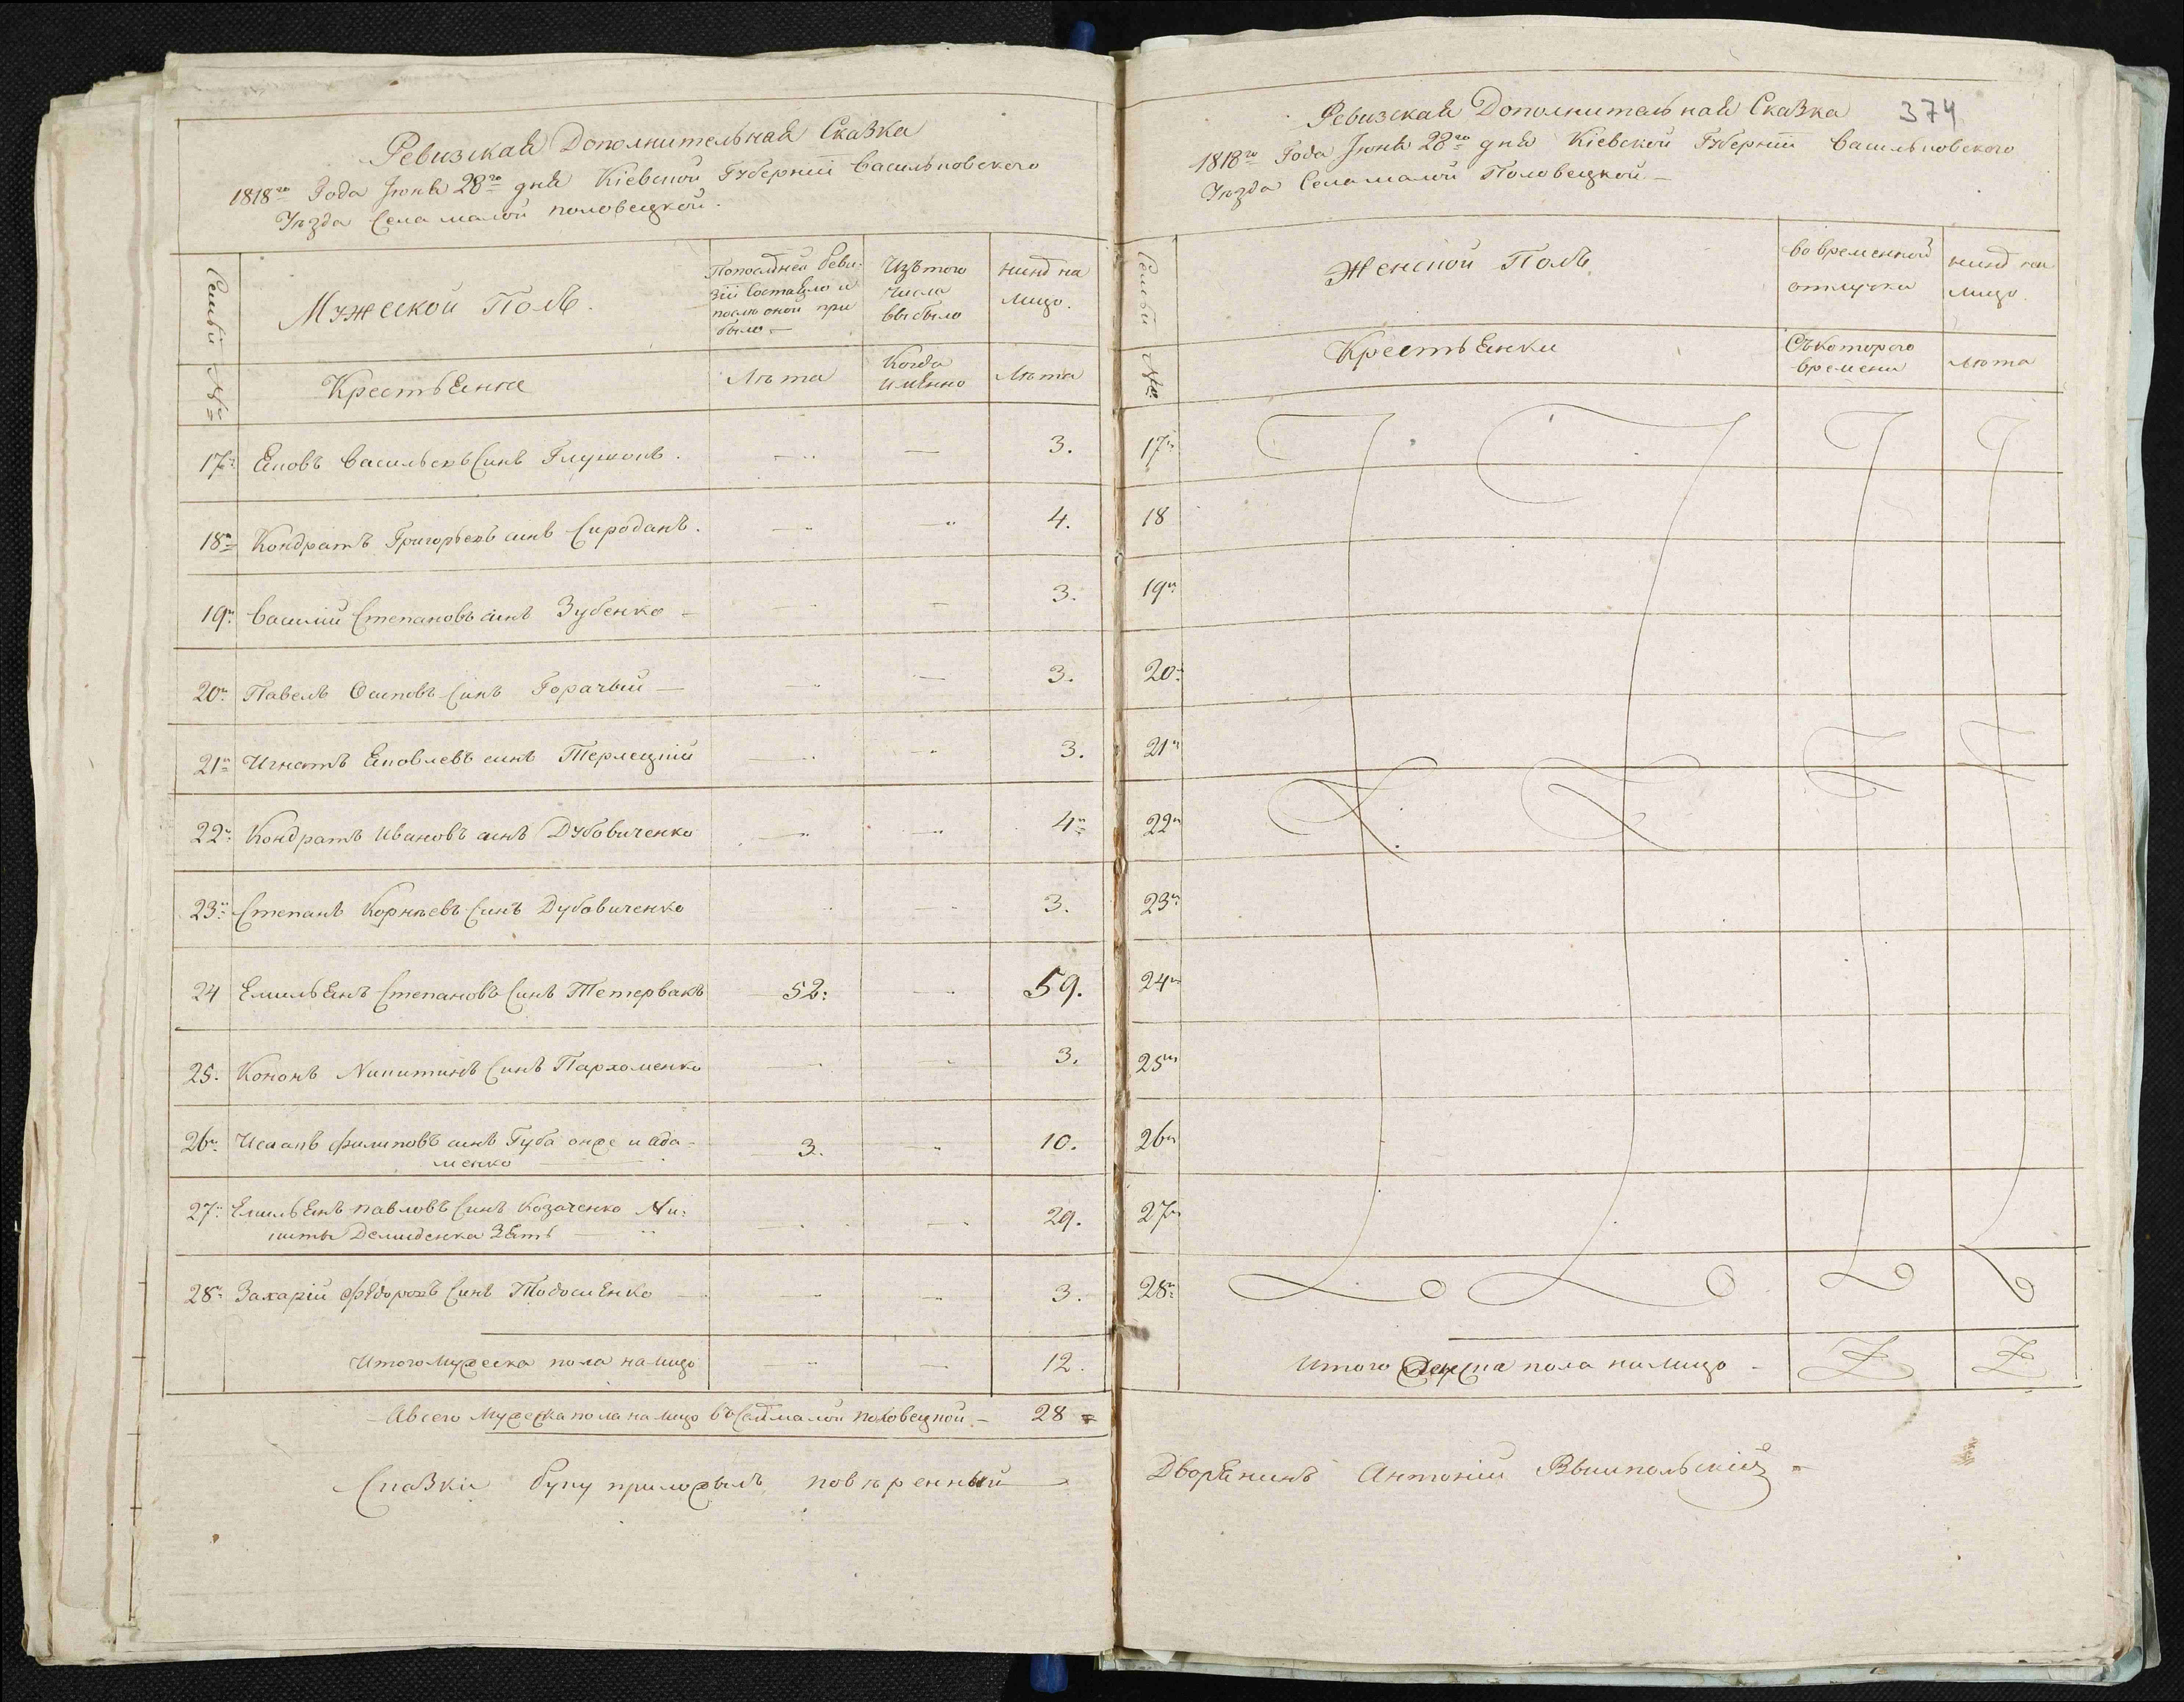 Ревизская Дополнительная Сказка
1818го Года Іюня 28го дня Кіевской Губерніи Васильковского
Уѣзда Села малой половецкой.
Семьи
№
Мужеской Полъ.
По последней Реви-
зіи Состаяло и
послѣ оной при
было
Изъ того
числа
выбыло
нинѣ на
лицо.
Крестьяне
Лѣта
Когда
имянно
Лѣта
17. Яковъ Васильевъ Синъ Глушокъ. 3.
18. Кондратъ Григорьевъ синъ Сироданъ. 4.
19. Василій Степановъ синъ Зубенко 3.
20. Павелъ Осиповъ Синъ Горачый 3.
21. Игнатъ Яковлевъ синъ Терлецкій 3.
22. Кондратъ Ивановъ синъ Дубовиченко 4
23. Степанъ Корнѣевъ Синъ Дубовиченко 3.
24 Емильянъ Степановъ Синъ Тетервакъ 52: 59.
25. Кононъ Никитинъ Синъ Пархоменко 3.
26. Исаакъ Филиповъ синъ Губа онже и Ада-
менко 3. 10.
27. Емильянъ павловъ Синъ Козаченко Ни-
киты Демиденка Зять 29.
28. Захарій Фѣдоровъ Синъ Тодосиенко 3.
Итого мужеска пола на лицо 12.
А всего мужеска пола на лицо въ Селѣ малой половецкой 28
Сказки Руку приложылъ повѣренный
Ревизская Дополнительная Сказка 374
1818го Года Іюня 28го дня Кіевской Губерніи Васильковского
Уѣзда Села малой Половецкой
Семьи
№
Женской Полъ.
Во временной
отлучки
нинѣ на
лицо.
Крестьянки
Съ которого
времени
лѣта
17
18
19
20
21
22
23
24
25
26
27
28
Итого Женска пола на лицо
Дворянинъ Антоній Вышпольскій